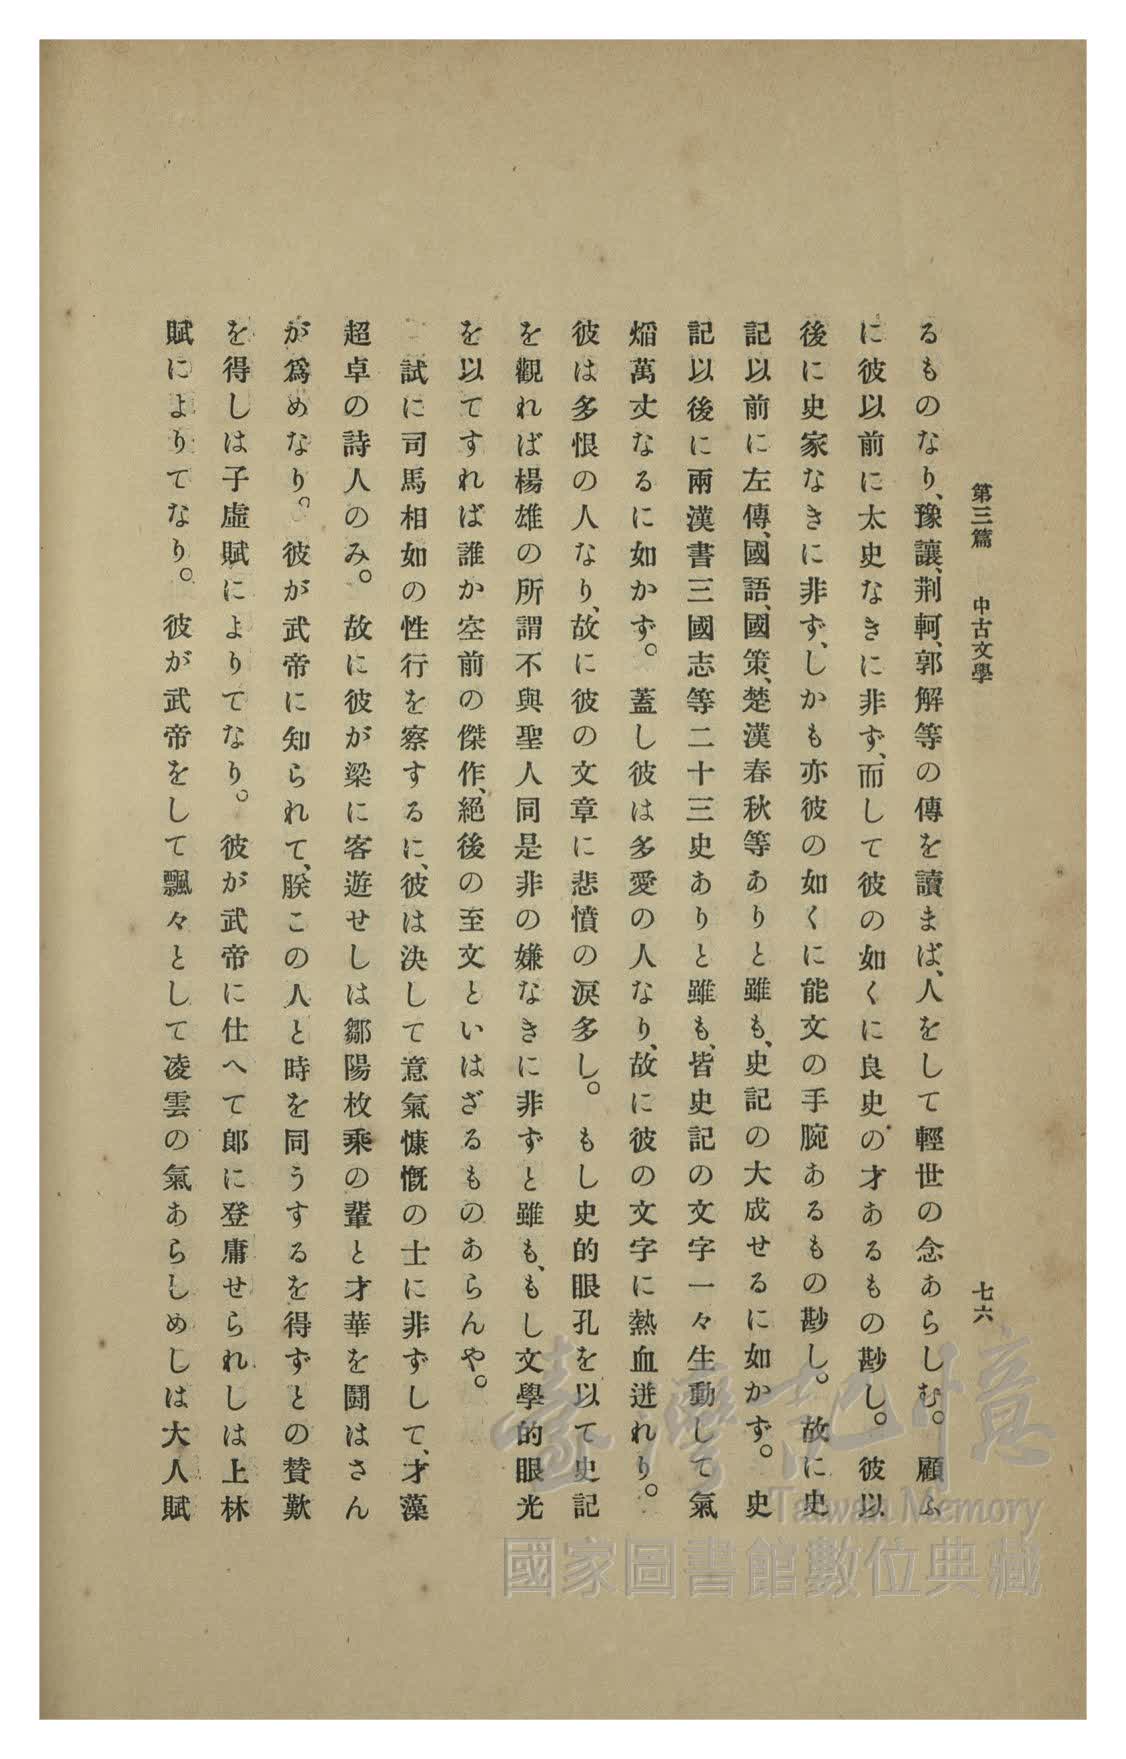 第三篇　中古文學　七六
るものなり、豫讓、荆軻、郭解等の傳を讀まば、人をして輕世の念あらしむ。顧ふ
に彼以前に太史なきに非ず、而して彼の如くに良史の才あるもの尠し。彼以
後に史家なきに非ず、しかも亦彼の如くに能文の手腕あるもの尠し。故に史
記以前に左傳、國語、國策、楚漢春秋等ありと雖も、史記の大成せるに如かず。史
記以後に兩漢書三國志等二十三史ありと雖も、皆史記の文字一々生動して氣
焰萬丈なるに如かず。蓋し彼は多愛の人なり、故に彼の文字に熱血迸れり。
彼は多恨の人なり、故に彼の文章に悲憤の涙多し。もし史的眼孔を以て史記
を觀れば楊雄の所謂不與聖人同是非の嫌なきに非ずと雖も、もし文學的眼光
を以てすれば誰か空前の傑作、絕後の至文といはざるものあらんや。
試に司馬相如の性行を察するに、彼は決して意氣慷慨の士に非ずして、才藻
超卓の詩人のみ。故に彼が梁に客遊せしは鄒陽枚乘の輩と才華を鬪はさん
が爲めなり。彼が武帝に知られて、朕この人と時を同うするを得ずとの賛歎
を得しは子虛賦によりてなり。彼が武帝に仕へて郎に登庸せられしは上林
賦によりてなり。彼が武帝をして飄々として凌雲の氣あらしめしは大人賦
臺灣記憶
Taiwan Memory
國家圖書館數位典藏